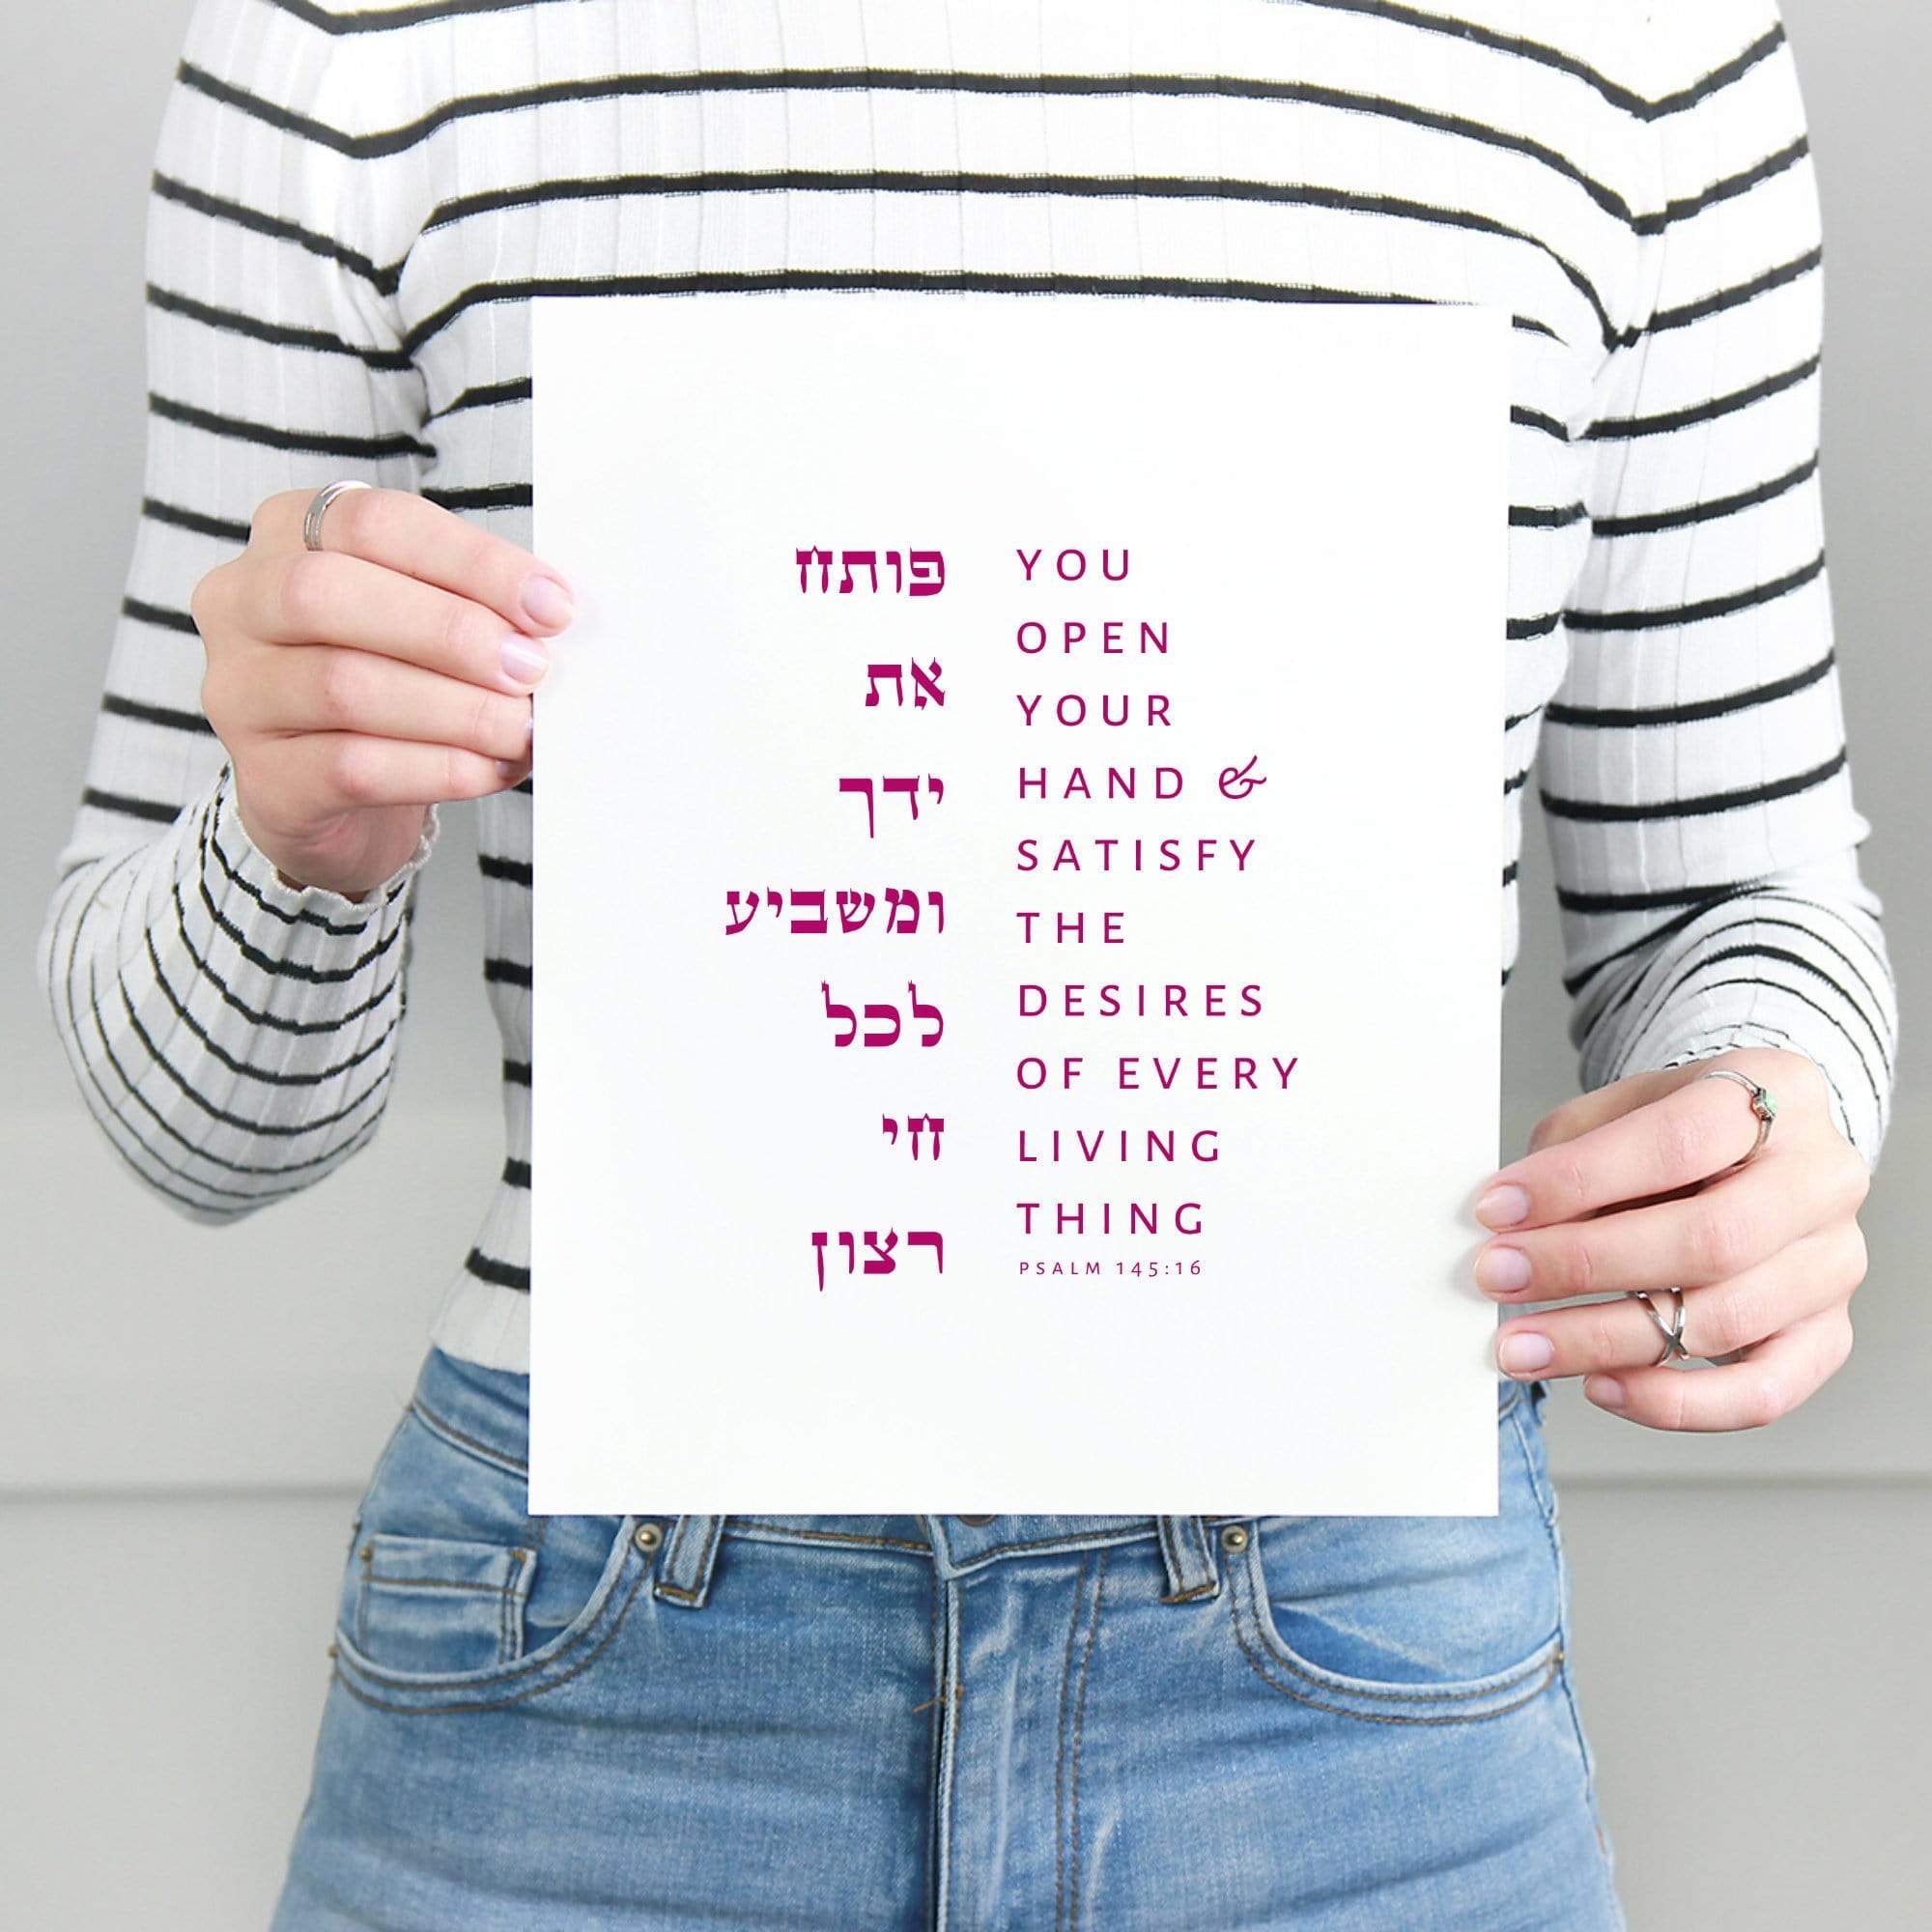 פותח
את
ידך
ומשביע
לכל
חי
רצון
YOU
OPEN
YOUR
HAND &
SATISFY
THE
DESIRES
OF EVERY
LIVING
THING
PSALM 145:16